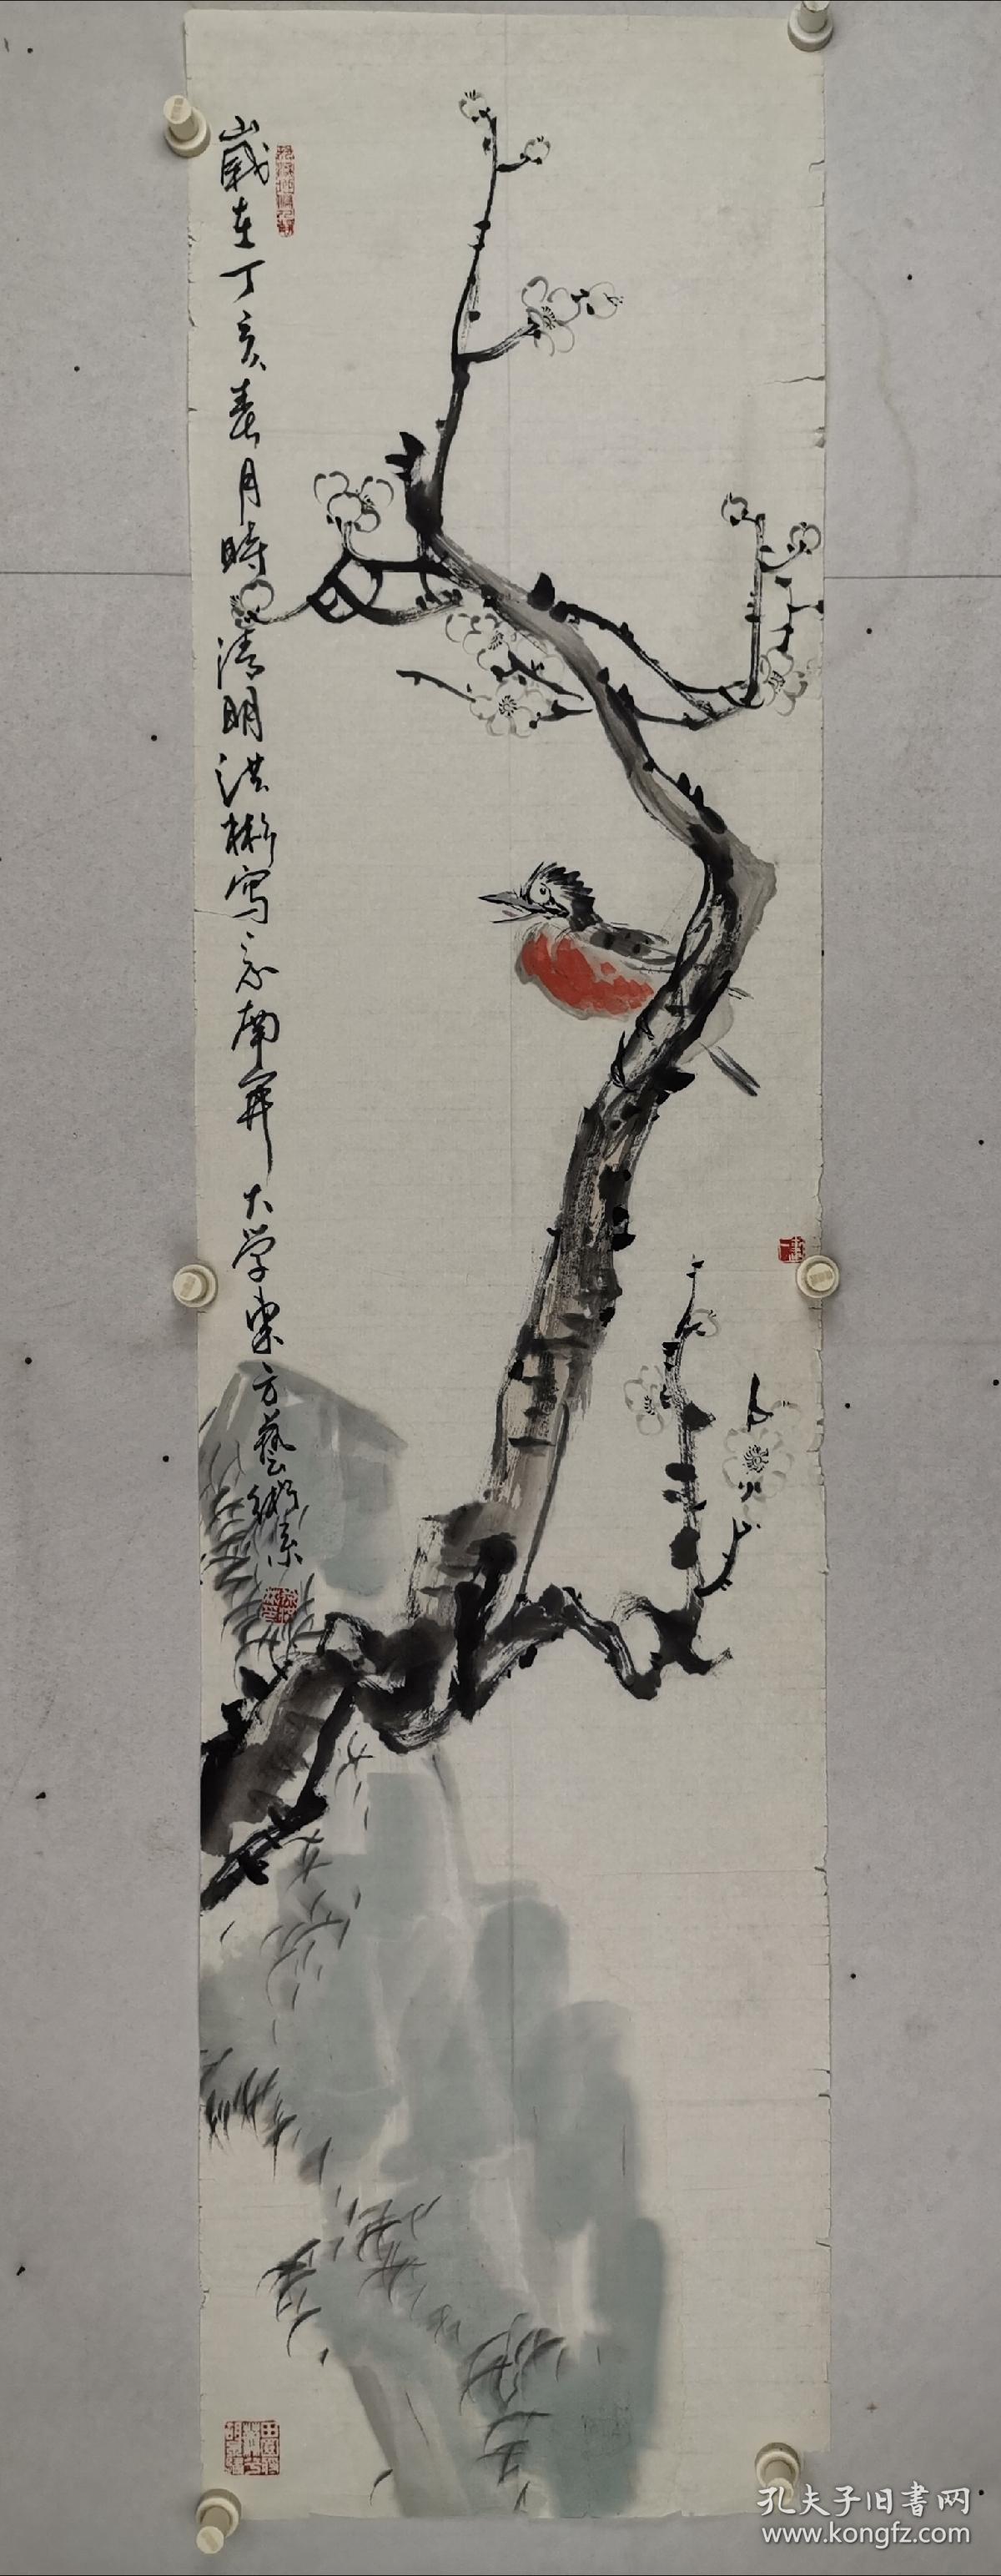 歲在丁亥春月時清明洪彬寫意南開大学東方藝術系
孔夫子旧書网
www.kongfz.com